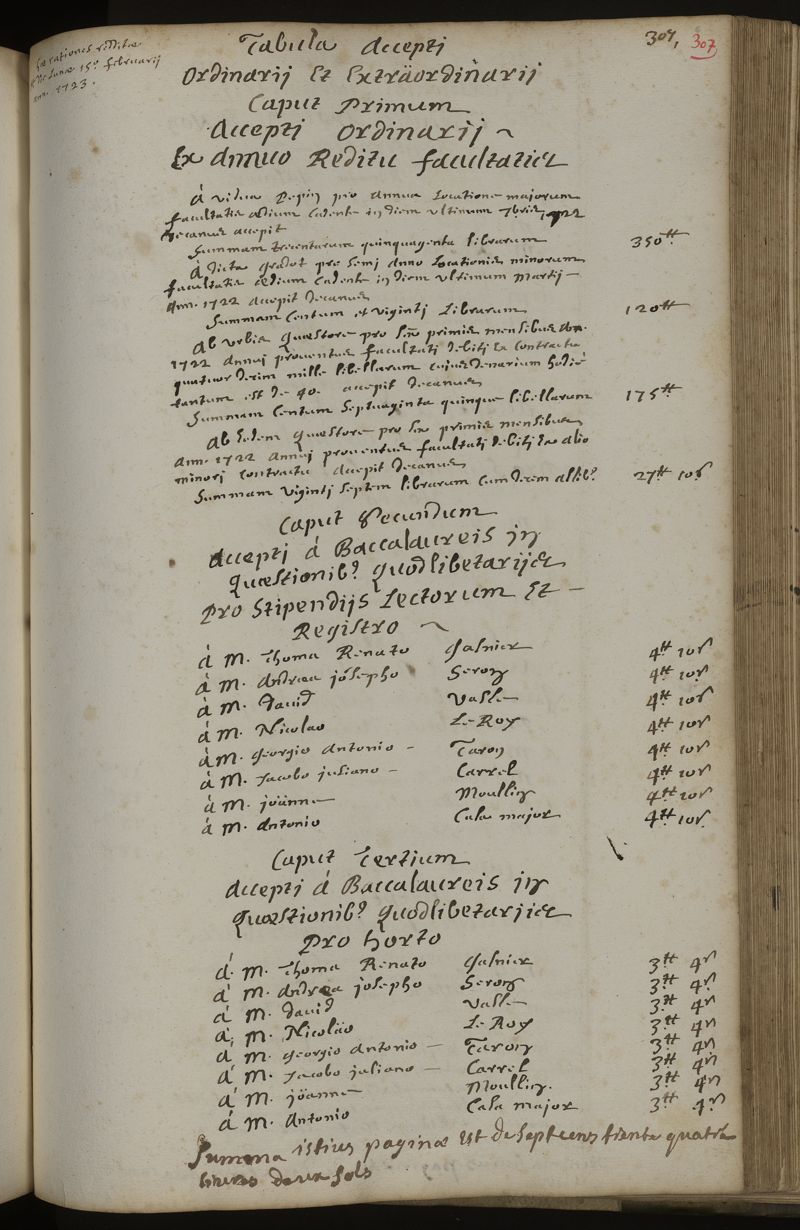 hæ rationes redditæ
die Lunæ 15ª februarij
ann. 1723.
307, 307
Tabula Accepti
Ordinarij Et Exträordiñarij
Caput Primum
Accepti Ordinarij ~
Ex Annuo Reditu facultatis
à vidua Pepin pro annua Locatione majorum
facultatis ædium cadente in diem ultimum 7bris 1722
Decanus accepit
Summam trecentarum quinquagenta librarum 350tt
à dicta gradot pro semj anno Locationis minorum
facultatis ædium cadente in diem ultimum Martij –
Ann. 1722 accepit Decanus
Summam Centum et vigintj Librarum 120tt
Ab urbis Quæstore pro sex primis mensibus Ann.
1722 Annuj proventus facultatj debitj Ex contractu
quatuordecim mille libellarum cujus denarium hodie
tantum est de 40. accepit Decanus
Summam Centum Septuaginta quinque libellarum 175tt
Ab Eodem Quæstore pro sex primis mensibus
Ann. 1722 Annuj proventus facultatj debitj Ex alio
minorj contractu accepit Decanus
Summam vigintj septem librarum cum decem assib? 27tt 10s
Caput Secundum
Acceptj à Baccalaureis in
Quæstionib? Quodlibetarijs
Pro Stipendijs Lectorum Et –
Registro ~
à M. Thoma Renato Gasnier 4tt 10s
à M. Andræa jösepho Seron 4tt 10s
à M. David Vasse 4tt 10s
à M. Nicolao Le Roy 4tt 10s
à M. Georgio Antonio – Taron 4tt 10s
à M. Jacobo juliano – Carrel 4tt 10s
à M. jöanne Moullin 4tt 10s
à M. Antonio Casa major 4tt 10s
Caput Tertium
Acceptj à Baccalaureis in
Quæstionib? Quodlibetarijs
Pro horto
à M. Thoma Renato Gasnier 3tt 4s
à M. Andræa josepho Seron 3tt 4s
à M. David Vasse 3tt 4s
à M. Nicoläo Le Roy 3tt 4s
à M. Georgio Antonio – Taron 3tt 4s
à M. Jacobo juliano – Carrel 3tt 4s
à M. jöanne Moullin. 3tt 4s
à M. Antonio Casa major 3tt 4s
Summa istius paginæ Est de Sept cens trente quatre
livres deux sols